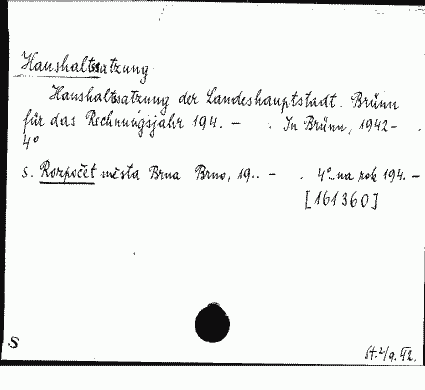 Haushaltssatzung
Haushaltssatzung der Landeshauptstadt Brünn
für das Rechnungsjahr 194. – . In Brünn, 1942- .
4°
s. Rozpočet města Brna Brno, 19.. – . 4° na rok 194. –
[161360]
S
St. 2/9. 42.